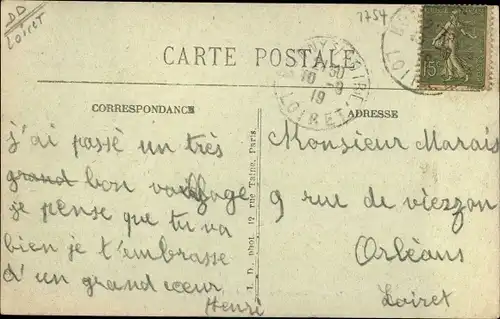 DD
Loiret
1754
CARTE POSTALE
15c
30
10 - 9
19
LOIRET
CORRESPONDANCE
ADRESSE
j'ai passè un très
grand bon vaffage
je pense que tu va
bien je t'embrasse
d'un grand cœur
Henri
I. D. phot. 12 rue Taine, Paris
Monsieur Marais
9 rue de viezzon
Orlèans
Loiret